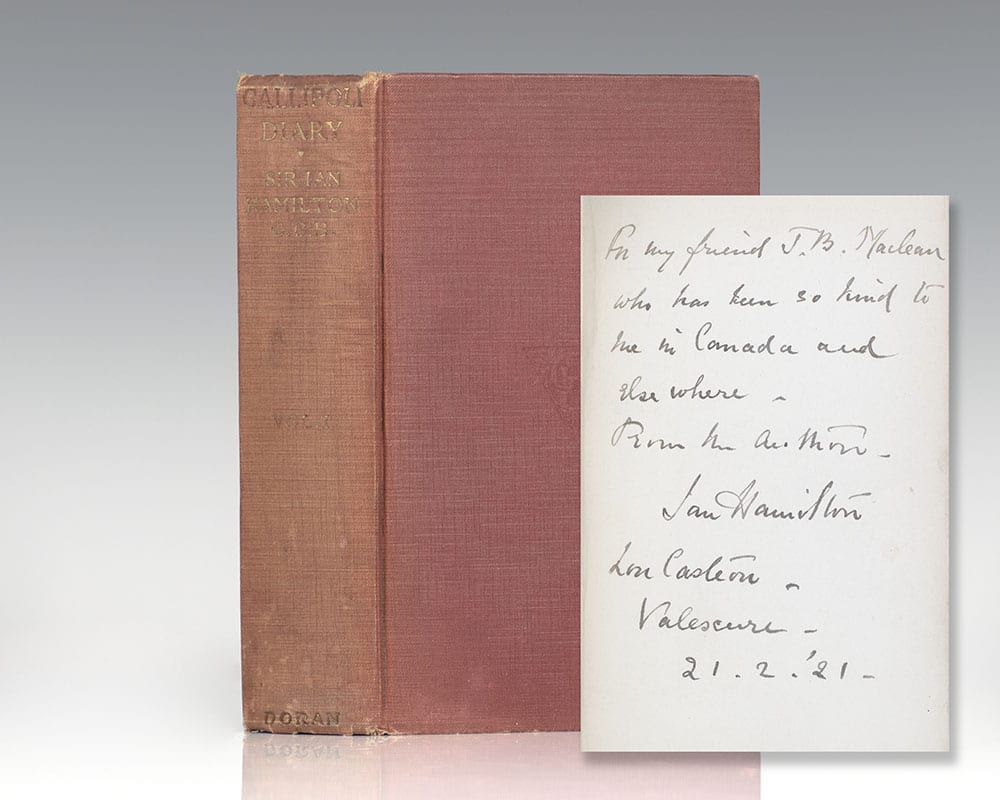 GALLIPOLI
DIARY
SIR IAN
HAMILTON
G.C.B.
VOL. I.
DORAN
For my friend J.B. Maclean
who has been so kind to
me in Canada and
elsewhere -
From the Author -
Ian Hamilton
Lou Casteou -
Valescure -
21.2.'21-